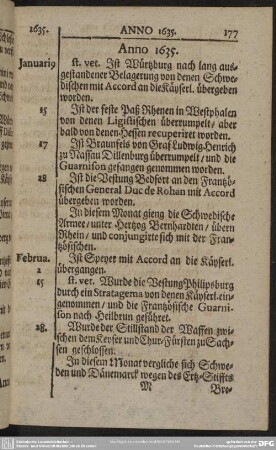 1635. ANNO 1635. 177
Anno 1635.
Januarij 9 st. vet. Ist Würtzburg nach lang aus-
gestandener Belagerung von denen Schwe-
dischen mit Accord an die Käyserl. übergeben
worden.
15 Ist der feste Paß Rhenen in Westphalen
von denen Ligistischen überrumpelt, aber
bald von denen Hessen recuperiret worden.
17 Ist Braunfels von Graf Ludwig-Henrich
zu Nassau Dillenburg überrumpelt/ und die
Guarnison gefangen genommen worden.
28 Ist die Vestung Bedfort an den Frantzö-
sischen General Duc de Rohan mit Accord
übergeben worden.
In diesem Monat gieng die Schwedische
Armee/ unter Hertzog Bernhardten/ übern
Rhein/ und conjungirte sich mit der Fran-
tzösischen.
Februa. 2 Ist Speyer mit Accord an die Käyserl.
übergangen.
15 st. vet. Wurde die Vestung Philipsburg
durch ein Stratagema von denen Käyserl. ein-
genommen/ und die Frantzösische Guarni-
son nach Heilbrun geführet.
28. Wurde der Stillstand der Waffen zwi-
schen dem Keyser und Chur-Fürsten zu Sach-
sen geschlossen.
In diesem Monat vergliche sich Schwe-
den und Dänemarck wegen des Ertz-Stiffts
M Bre-